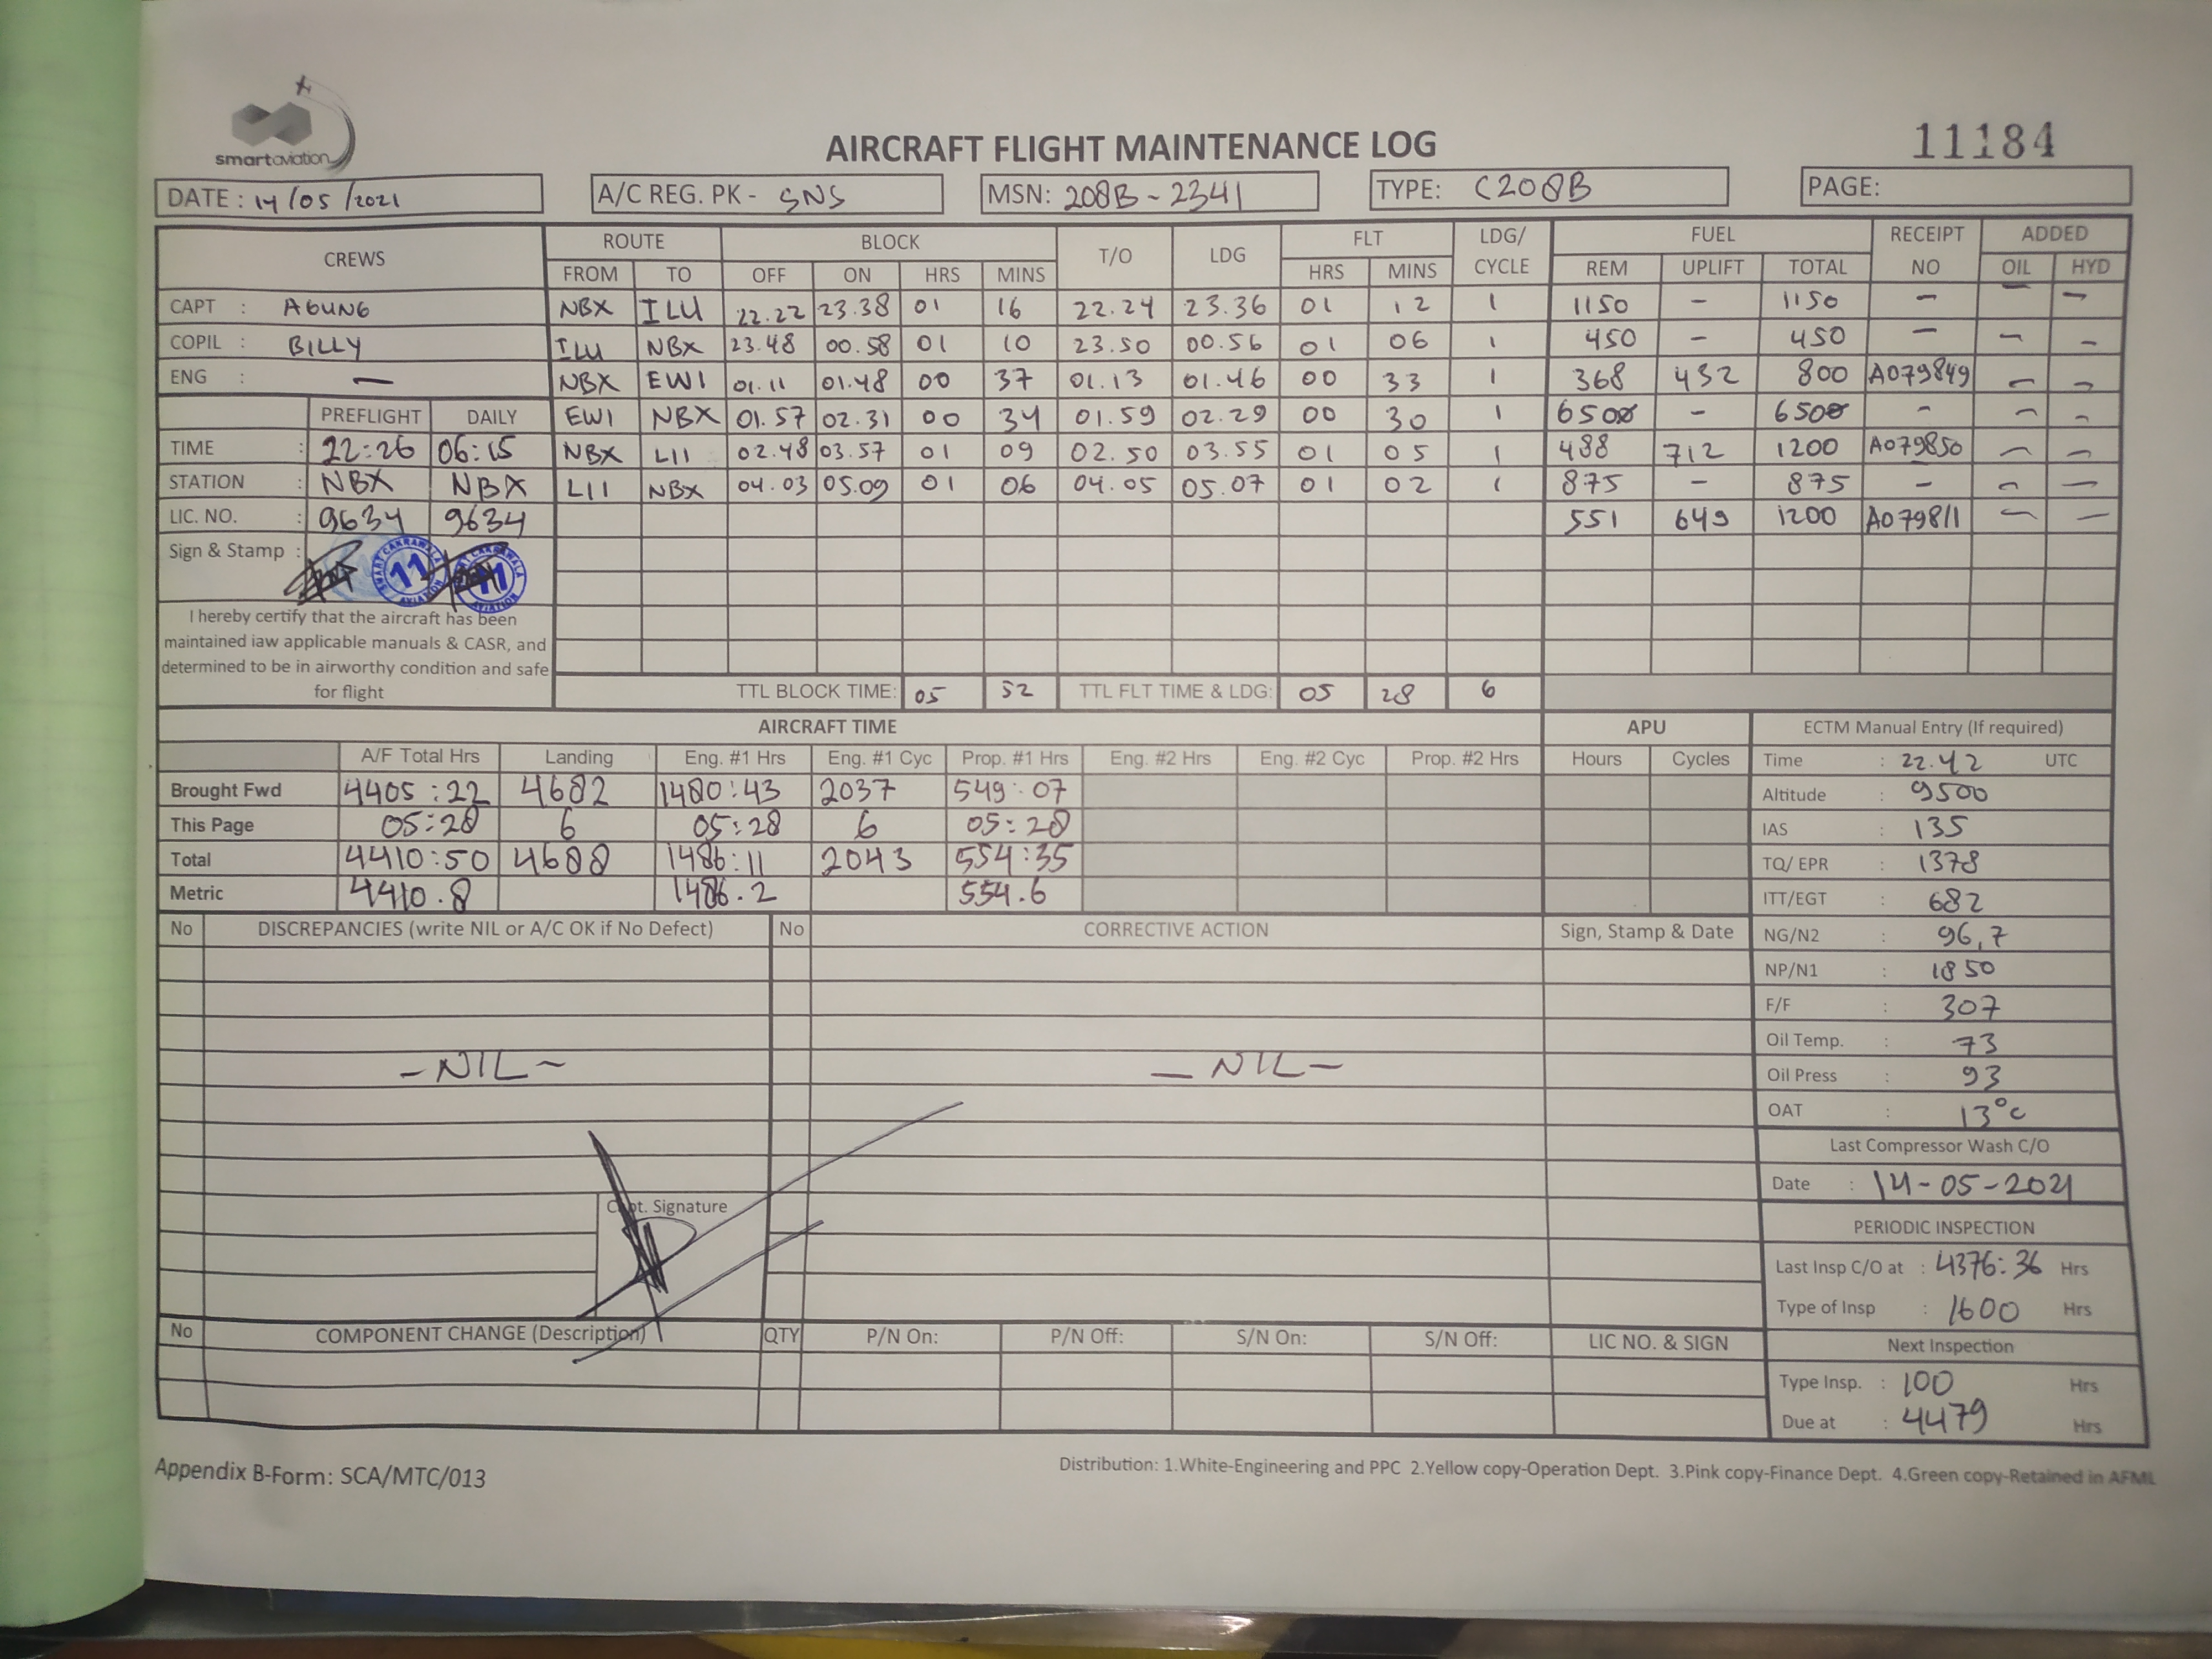 smartaviation
AIRCRAFT FLIGHT MAINTENANCE LOG
11184
DATE : 14/05/2021 A/C REG. PK - SNS MSN: 208B-2341 TYPE: C208B PAGE:
CREWS ROUTE BLOCK T/O LDG FLT LDG/ CYCLE FUEL RECEIPT NO ADDED
FROM TO OFF ON HRS MINS HRS MINS REM UPLIFT TOTAL OIL HYD
CAPT : AGUNG NBX ILU 22.22 23.38 01 16 22.24 23.36 01 12 1 1150 - 1150 - - -
COPIL : BILLY ILU NBX 23.48 00.58 01 10 23.50 00.56 01 06 1 450 - 450 - - -
ENG : - NBX EWI 01.11 01.48 00 37 01.13 01.46 00 33 1 368 432 800 A079849 - -
PREFLIGHT DAILY EWI NBX 01.57 02.31 00 34 01.59 02.29 00 30 1 6500 - 6500 - - -
TIME : 22:26 06:15 NBX LII 02.48 03.57 01 09 02.50 03.55 01 05 1 488 712 1200 A079850 - -
STATION : NBX NBX LII NBX 04.03 05.09 01 06 04.05 05.07 01 02 1 875 - 875 - - -
LIC. NO. : 9634 9634 551 649 1200 A079811 - -
Sign & Stamp :
SMART CAKRAWALA AVIATION 11
SMART CAKRAWALA AVIATION 11
I hereby certify that the aircraft has been
maintained iaw applicable manuals & CASR, and
determined to be in airworthy condition and safe
for flight
TTL BLOCK TIME: 05 52 TTL FLT TIME & LDG: 05 28 6
AIRCRAFT TIME APU ECTM Manual Entry (If required)
A/F Total Hrs Landing Eng. #1 Hrs Eng. #1 Cyc Prop. #1 Hrs Eng. #2 Hrs Eng. #2 Cyc Prop. #2 Hrs Hours Cycles Time : 22.42 UTC
Brought Fwd 4405:22 4682 1480:43 2037 549:07 Altitude : 9500
This Page 05:28 6 05:28 6 05:28 IAS : 135
Total 4410:50 4688 1486:11 2043 554:35 TQ/ EPR : 1378
Metric 4410.8 1486.2 554.6 ITT/EGT : 682
No DISCREPANCIES (write NIL or A/C OK if No Defect) No CORRECTIVE ACTION Sign, Stamp & Date NG/N2 : 96,7
NP/N1 : 1850
F/F : 307
Oil Temp. : 73
- NIL - - NIL - Oil Press : 93
OAT : 13°c
Last Compressor Wash C/O
Date : 14-05-2021
Capt. Signature
PERIODIC INSPECTION
Last Insp C/O at : 4376:36 Hrs
Type of Insp : 1600 Hrs
No COMPONENT CHANGE (Description) QTY P/N On: P/N Off: S/N On: S/N Off: LIC NO. & SIGN Next Inspection
Type Insp. : 100 Hrs
Due at : 4479 Hrs
Appendix B-Form: SCA/MTC/013
Distribution: 1.White-Engineering and PPC 2.Yellow copy-Operation Dept. 3.Pink copy-Finance Dept. 4.Green copy-Retained in AFML